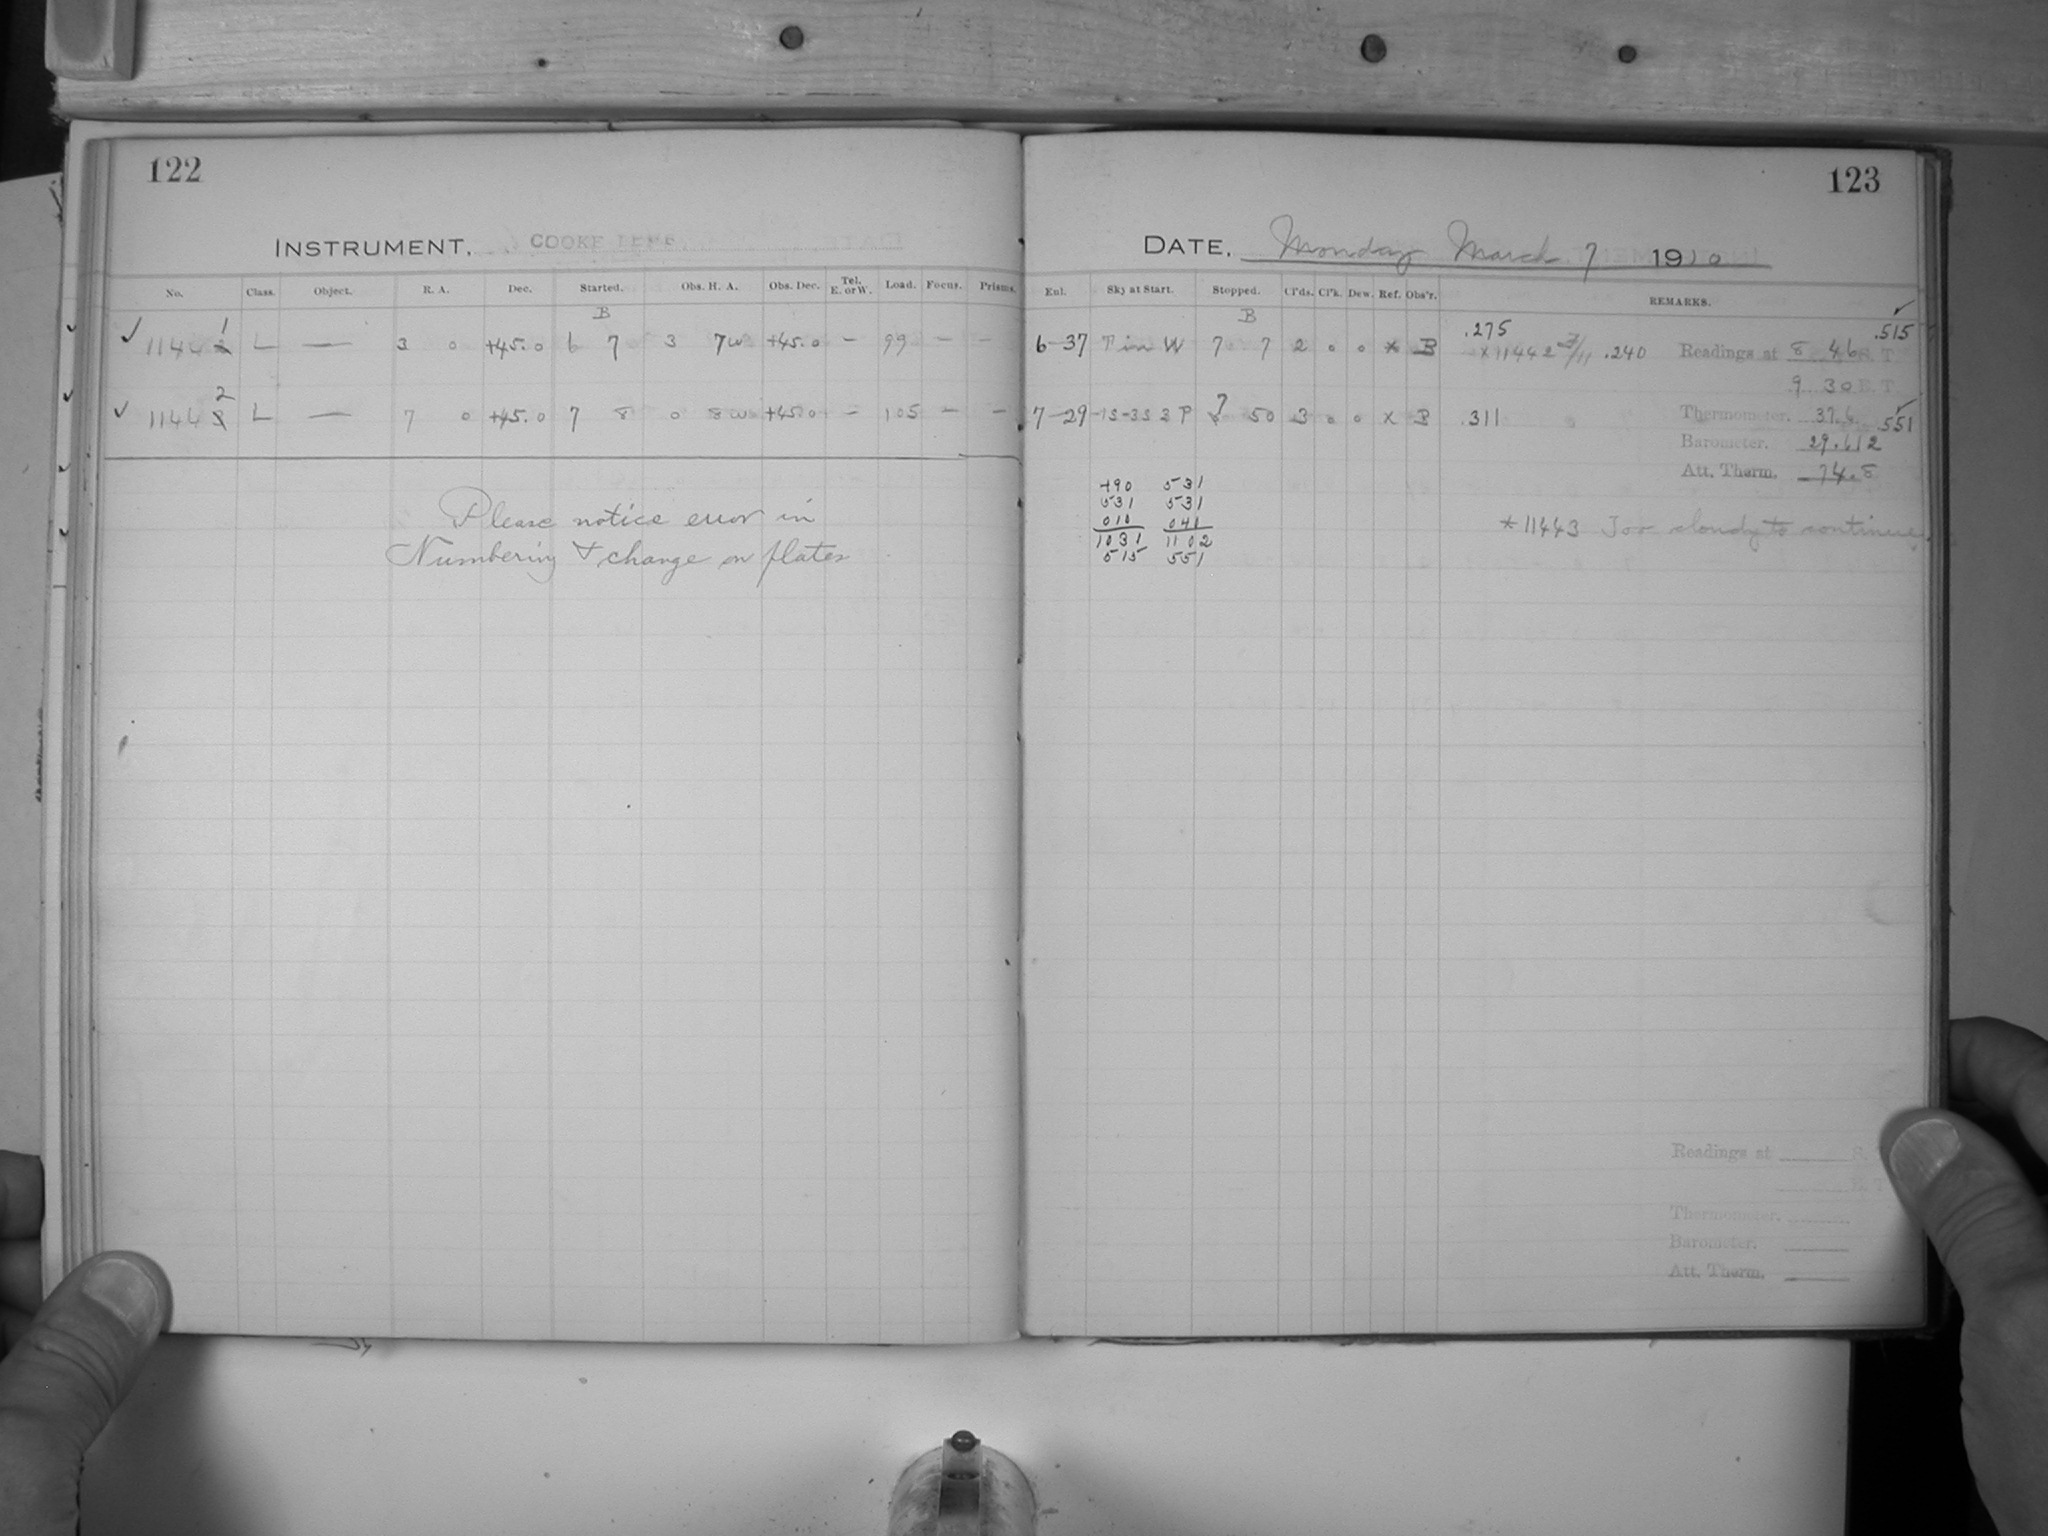 122
INSTRUMENT, COOKE LENS
No. Class. Object. R. A. Dec. Started. Obs. H. A. Obs. Dec. Tel. E. or W. Load. Focus. Prisms.
B
1
11442 L — 3 0 +45.0 6 7 3 7w +45.0 — 99 — —
2
11443 L — 7 0 +45.0 7 8 0 8w +45.0 — 105 — —
Please notice error in
Numbering & change on plates
123
DATE, Monday March 7 1910
Enl. Sky at Start. Stopped. Cl'ds. Cl'k. Dew. Ref. Obs'r. REMARKS.
B
.275 .515
6-37 P in W 7 7 2 0 0 x B x11442 .240 Readings at 8 46 S. T
9 30 E. T
7-29 -1S-3S 2P 50 3 0 0 x B .311 Thermometer. 37.6 .551
Barometer. 29.612
Att. Therm. 74.8
490 531
531 531
010 040
1031 1102
515 551
*11443 Too cloudy to continue.
Readings at S.
Thermometer.
Barometer.
Att. Therm.